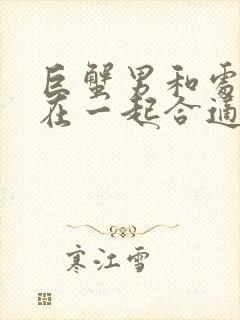 巨蟹男和处
在一起合适
寒江雪